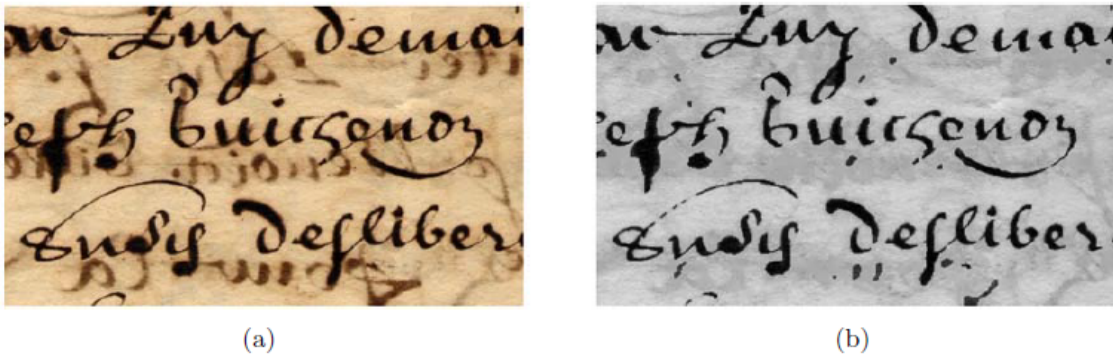 Luy demai
eph Guichenon
desliber
(a)
Luy demai
eph Guichenon
desliber
(b)